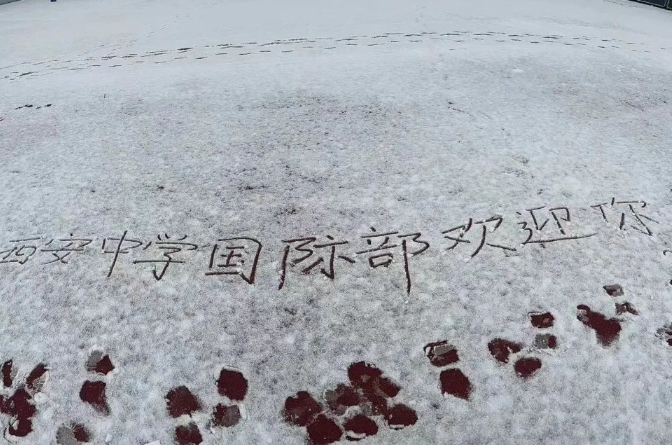 西安中学国际部欢迎你